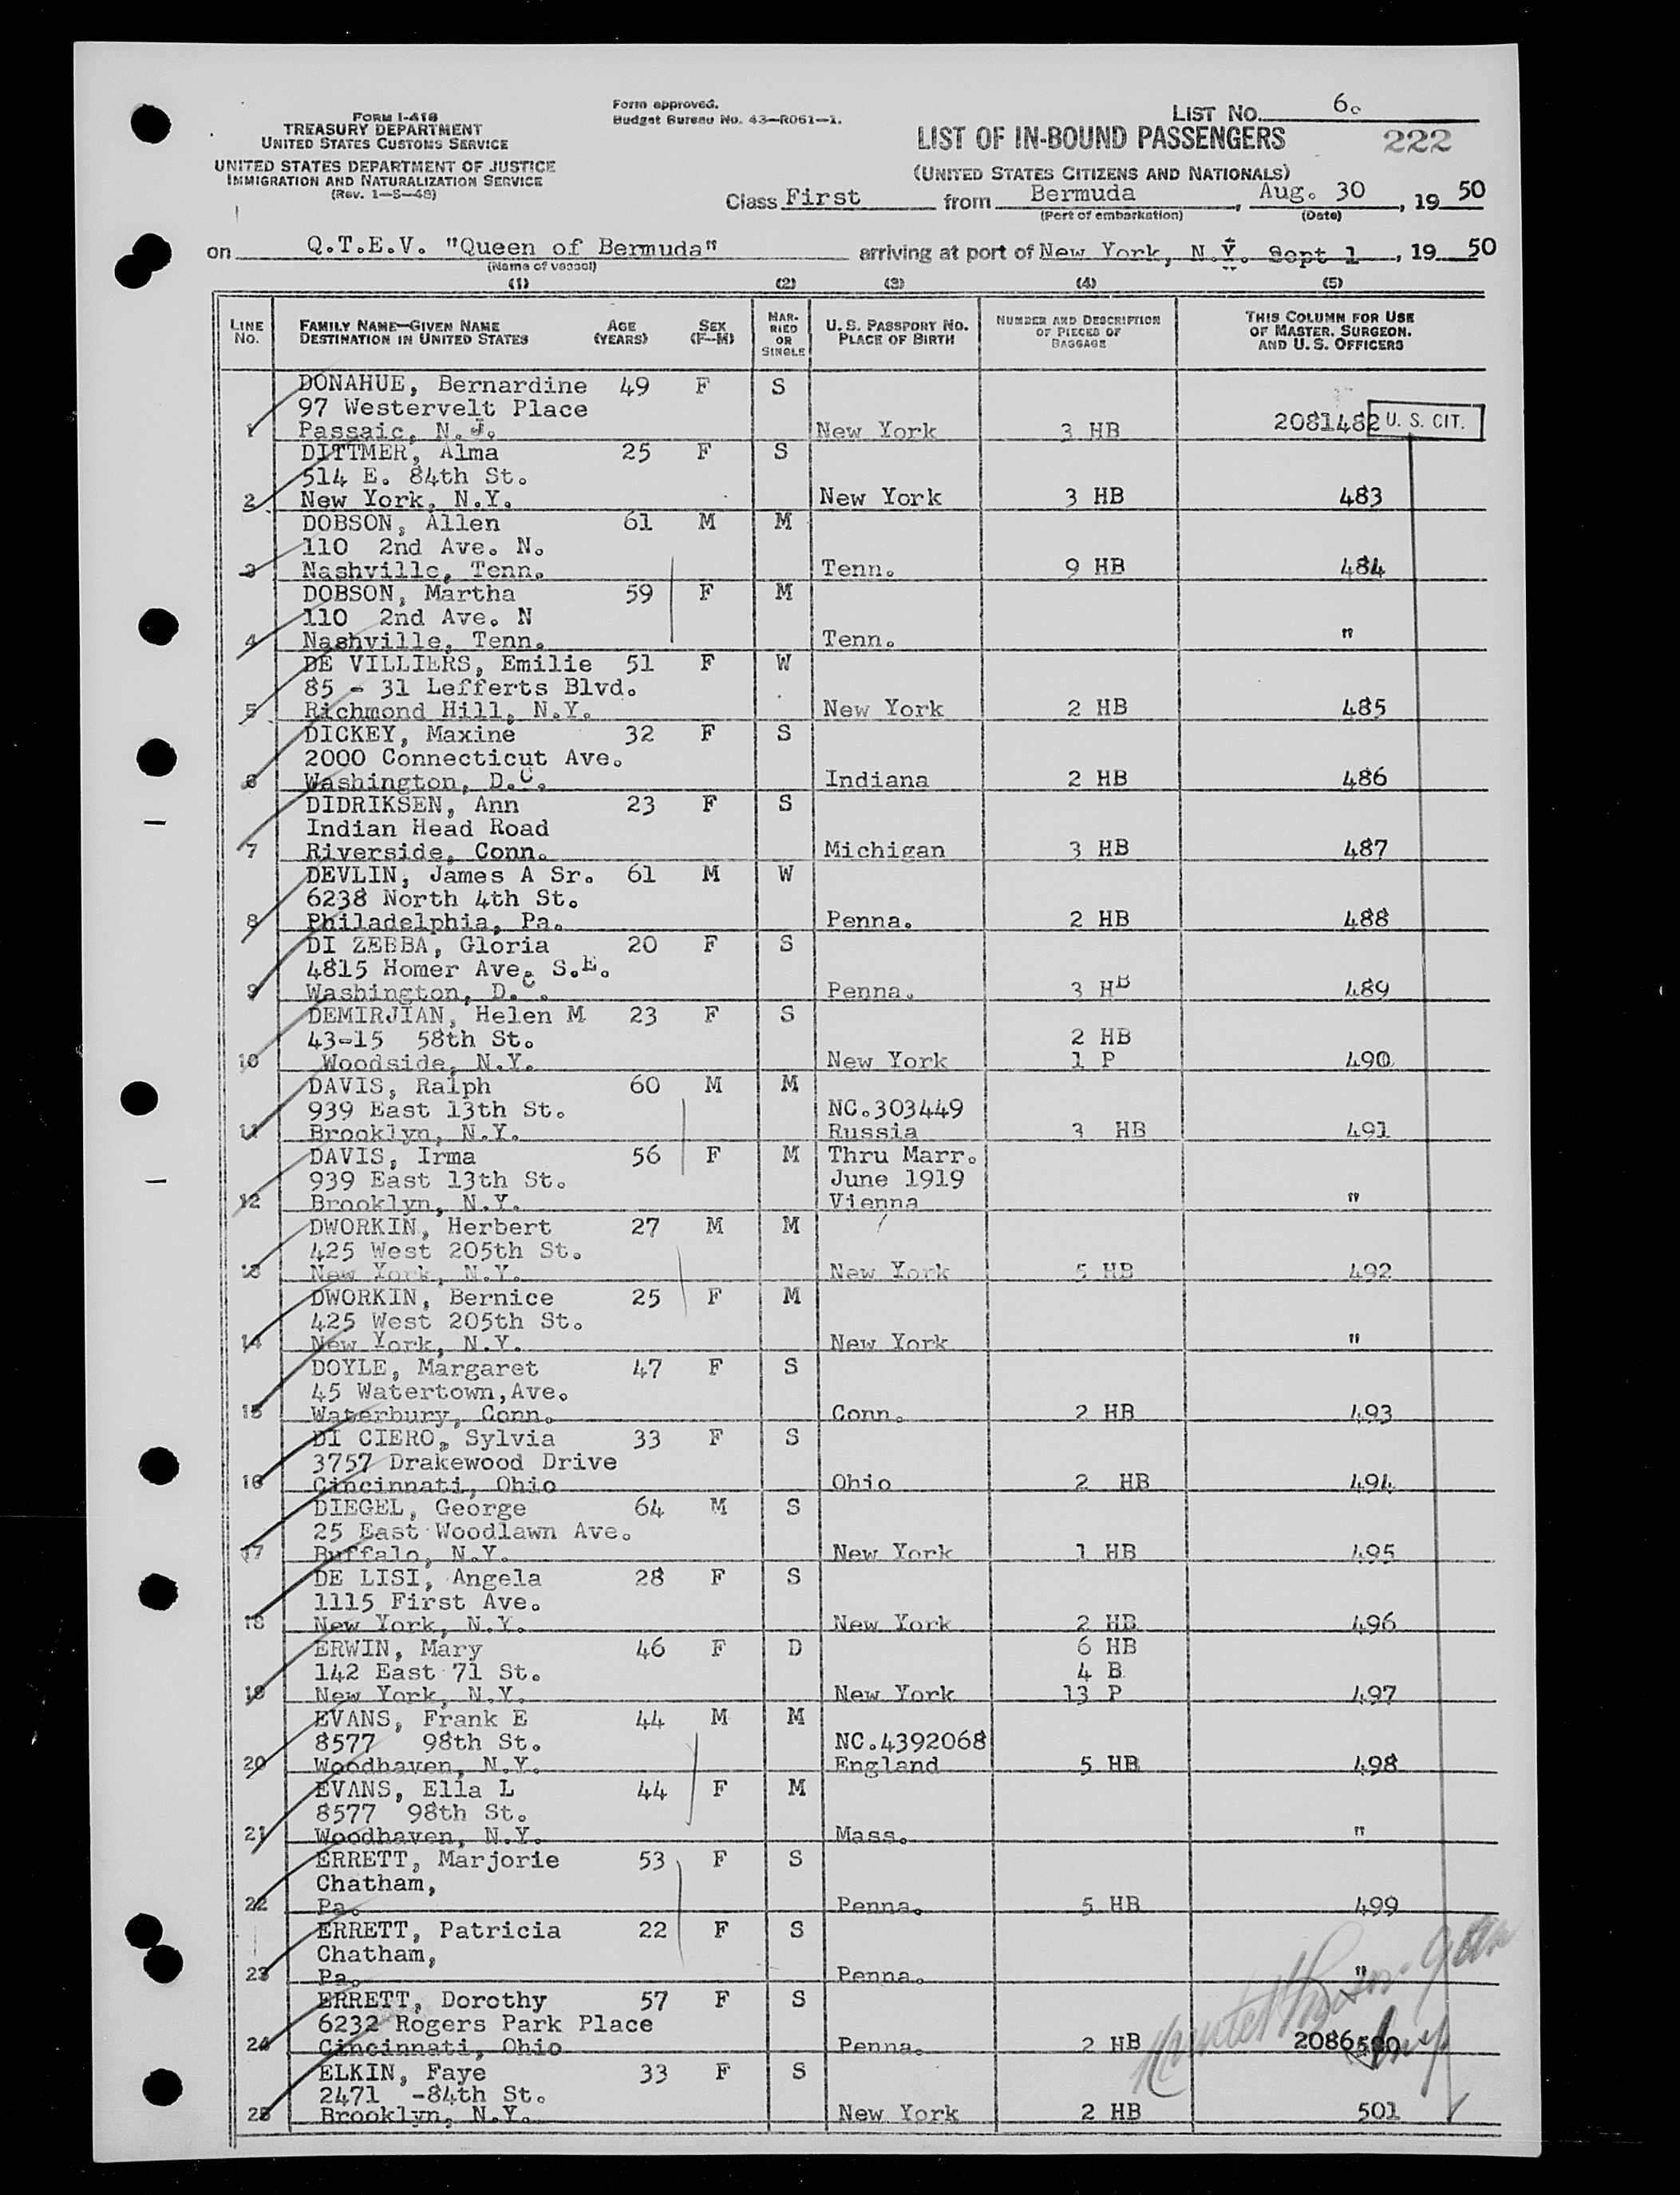 FORM I-418
TREASURY DEPARTMENT
UNITED STATES CUSTOMS SERVICE
UNITED STATES DEPARTMENT OF JUSTICE
IMMIGRATION AND NATURALIZATION SERVICE
(Rev. 1-5-48)
Form approved.
Budget Bureau No. 43-R061-1.
LIST No. 6
LIST OF IN-BOUND PASSENGERS 222
(UNITED STATES CITIZENS AND NATIONALS)
Class First from Bermuda, Aug. 30, 19 50
(Port of embarkation) (Date)
on Q.T.E.V. "Queen of Bermuda" arriving at port of New York, N.Y. Sept 1, 19 50
(Name of vessel)
(1) (2) (3) (4) (5)
LINE No. FAMILY NAME—GIVEN NAME DESTINATION IN UNITED STATES AGE (YEARS) SEX (F—M) MARRIED OR SINGLE U. S. PASSPORT NO. PLACE OF BIRTH NUMBER AND DESCRIPTION OF PIECES OF BAGGAGE THIS COLUMN FOR USE OF MASTER, SURGEON, AND U. S. OFFICERS
DONAHUE, Bernardine 49 F S
97 Westervelt Place
1 Passaic, N.J. New York 3 HB 2081482 U. S. CIT.
DITTMER, Alma 25 F S
514 E. 84th St.
2 New York, N.Y. New York 3 HB 483
DOBSON, Allen 61 M M
110 2nd Ave. N.
3 Nashville, Tenn. Tenn. 9 HB 484
DOBSON, Martha 59 F M
110 2nd Ave. N
4 Nashville, Tenn. Tenn. "
DE VILLIERS, Emilie 51 F W
85 - 31 Lefferts Blvd.
5 Richmond Hill, N.Y. New York 2 HB 485
DICKEY, Maxine 32 F S
2000 Connecticut Ave.
6 Washington, D.C. Indiana 2 HB 486
DIDRIKSEN, Ann 23 F S
Indian Head Road
7 Riverside, Conn. Michigan 3 HB 487
DEVLIN, James A Sr. 61 M W
6238 North 4th St.
8 Philadelphia, Pa. Penna. 2 HB 488
DI ZEBBA, Gloria 20 F S
4815 Homer Ave. S.E.
9 Washington, D.C. Penna. 3 HB 489
DEMIRJIAN, Helen M 23 F S
43-15 58th St. 2 HB
10 Woodside, N.Y. New York 1 P 490
DAVIS, Ralph 60 M M
939 East 13th St. NC.303449
11 Brooklyn, N.Y. Russia 3 HB 491
DAVIS, Irma 56 F M Thru Marr.
939 East 13th St. June 1919
12 Brooklyn, N.Y. Vienna "
DWORKIN, Herbert 27 M M
425 West 205th St.
13 New York, N.Y. New York 5 HB 492
DWORKIN, Bernice 25 F M
425 West 205th St.
14 New York, N.Y. New York "
DOYLE, Margaret 47 F S
45 Watertown,Ave.
15 Waterbury, Conn. Conn. 2 HB 493
DI CIERO, Sylvia 33 F S
3757 Drakewood Drive
16 Cincinnati, Ohio Ohio 2 HB 494
DIEGEL, George 64 M S
25 East Woodlawn Ave.
17 Buffalo, N.Y. New York 1 HB 495
DE LISI, Angela 28 F S
1115 First Ave.
18 New York, N.Y. New York 2 HB 496
ERWIN, Mary 46 F D 6 HB
142 East 71 St. 4 B
19 New York, N.Y. New York 13 P 497
EVANS, Frank E 44 M M
8577 98th St. NC.4392068
20 Woodhaven, N.Y. England 5 HB 498
EVANS, Ella L 44 F M
8577 98th St.
21 Woodhaven, N.Y. Mass. "
ERRETT, Marjorie 53 F S
Chatham,
22 Pa. Penna. 5 HB 499
ERRETT, Patricia 22 F S
Chatham,
23 Pa. Penna. "
ERRETT, Dorothy 57 F S
6232 Rogers Park Place
24 Cincinnati, Ohio Penna. 2 HB 2086500
ELKIN, Faye 33 F S
2471 -84th St.
25 Brooklyn, N.Y. New York 2 HB 501